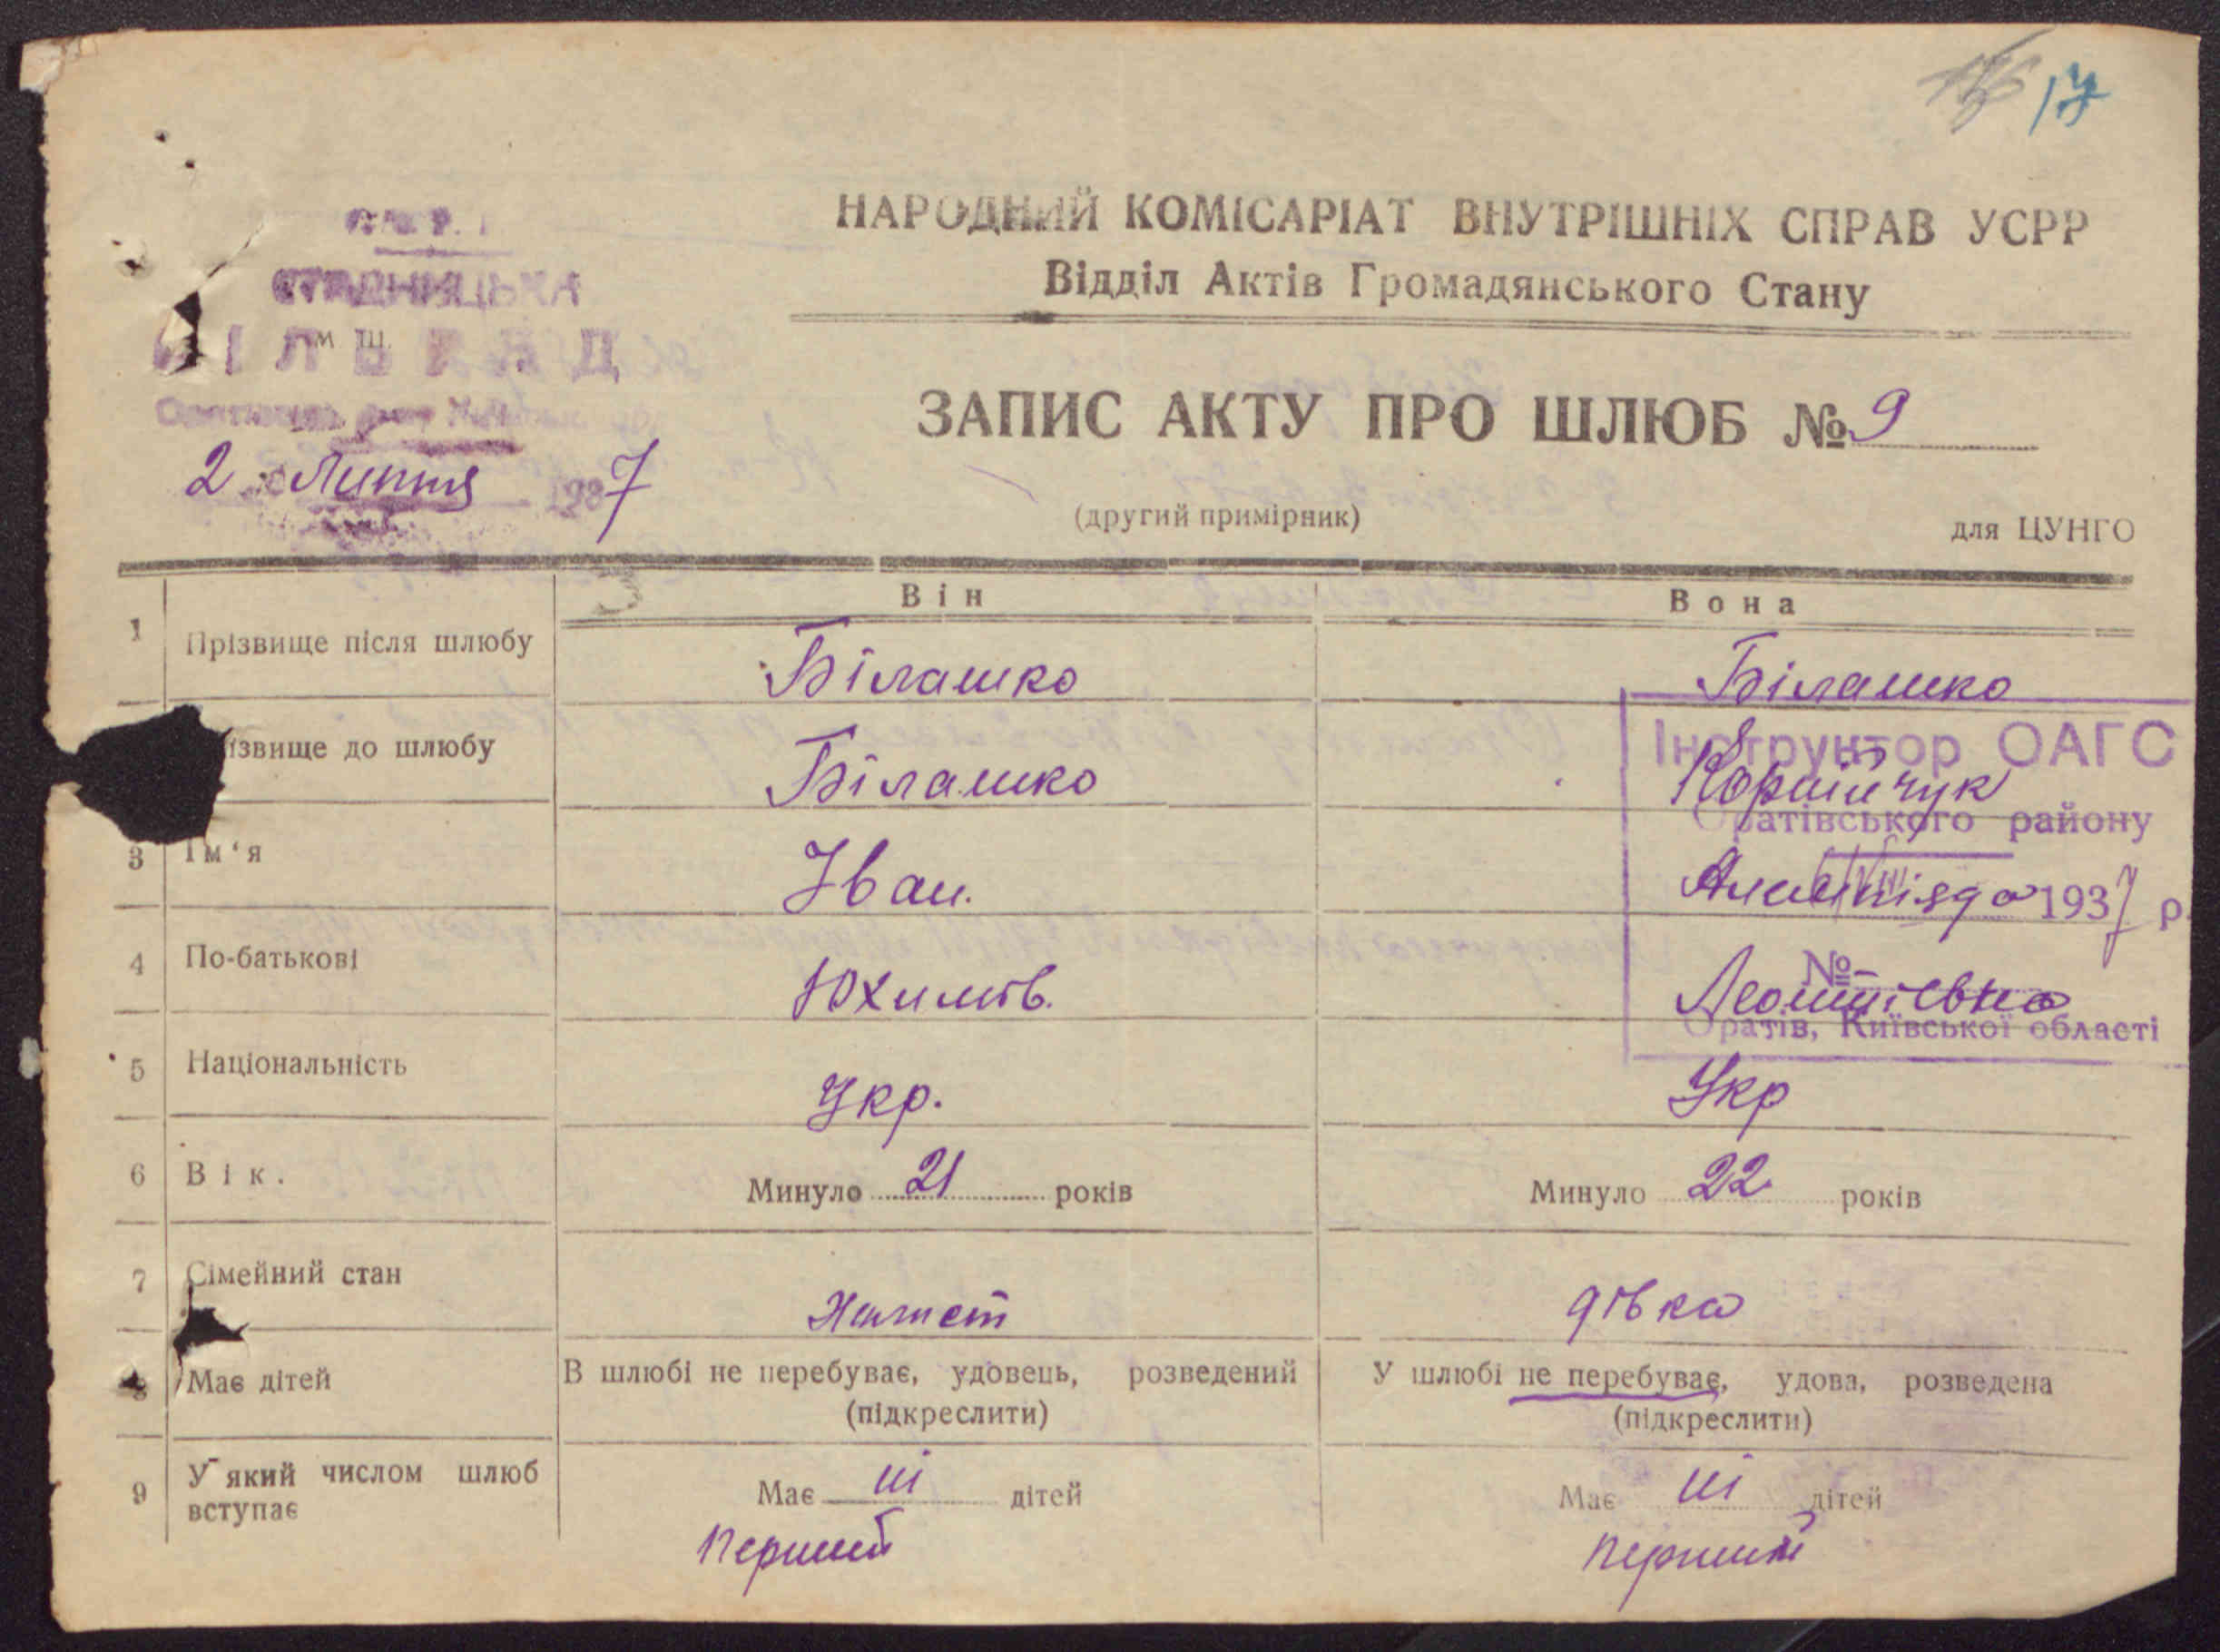 17
НАРОДНИЙ КОМІСАРІАТ ВНУТРІШНІХ СПРАВ УСРР
Відділ Актів Громадянського Стану
СТАДНИЦЬКА
СІЛЬРАД
м. Ш.
ЗАПИС АКТУ ПРО ШЛЮБ № 9
2 Липня 1937
(другий примірник)
для ЦУНГО
Він
Вона
1 Прізвище після шлюбу Білашко Білашко
ізвище до шлюбу Білашко Корнійчук
Інструктор ОАГС
Оратівського району
3 Ім'я Іван.
1937 р.
4 По-батькові Юхимов.
№
Оратів, Київської області
5 Національність Укр. Укр
6 Вік. Минуло 21 років Минуло 22 років
7 Сімейний стан Холост дівка
8 Має дітей В шлюбі не перебуває, удовець, розведений У шлюбі не перебуває, удова, розведена
(підкреслити) (підкреслити)
9 У який числом шлюб вступає Має ні дітей Має ні дітей
Перший перший